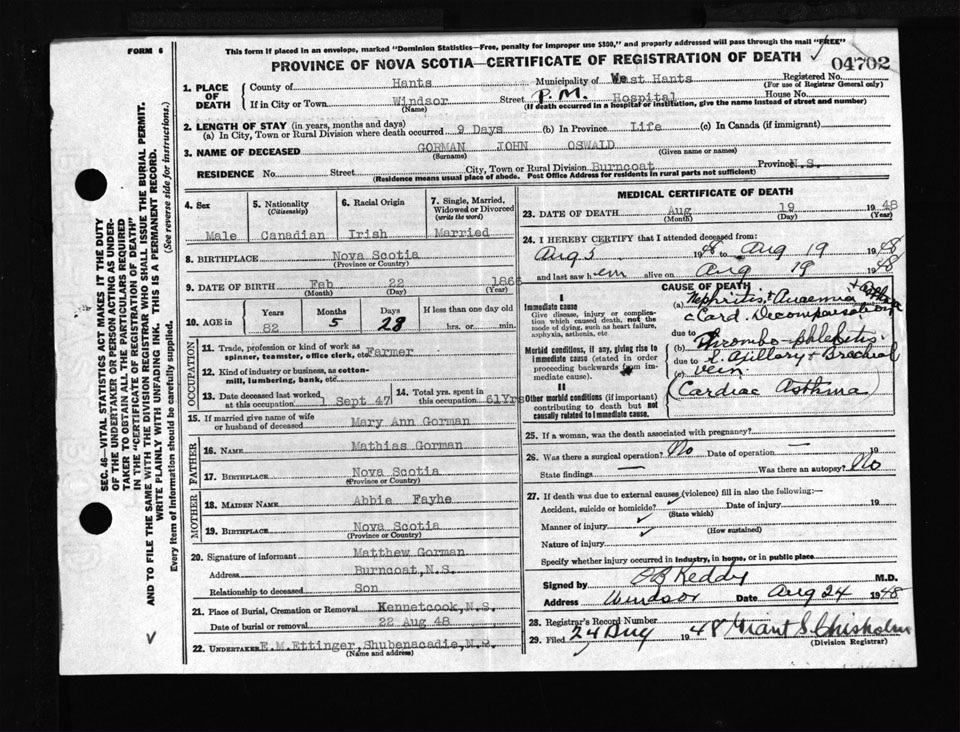 FORM 6
This form if placed in an envelope, marked "Dominion Statistics—Free, penalty for improper use $300," and properly addressed will pass through the mail "FREE"
PROVINCE OF NOVA SCOTIA—CERTIFICATE OF REGISTRATION OF DEATH
04702
1. PLACE OF DEATH
County of Hants Municipality of West Hants Registered No.
(For use of Registrar General only)
If in City or Town Windsor Street P.M. Hospital House No.
(Name) (If death occurred in a hospital or institution, give the name instead of street and number)
2. LENGTH OF STAY (in years, months and days)
(a) In City, Town or Rural Division where death occurred 9 Days (b) In Province Life (c) In Canada (if immigrant)
3. NAME OF DECEASED GORMAN JOHN OSWALD
(Surname) (Given name or names)
RESIDENCE No. Street City, Town or Rural Division Burncoat Province N.S.
(Residence means usual place of abode. Post Office Address for residents in rural parts not sufficient)
4. Sex
Male
5. Nationality
(Citizenship)
Canadian
6. Racial Origin
Irish
7. Single, Married, Widowed or Divorced
(write the word)
Married
8. BIRTHPLACE Nova Scotia
(Province or Country)
9. DATE OF BIRTH Feb 22 1866
(Month) (Day) (Year)
10. AGE in
Years Months Days If less than one day old
82 5 28 hrs. or min.
OCCUPATION
11. Trade, profession or kind of work as
spinner, teamster, office clerk, etc. Farmer
12. Kind of industry or business, as cotton-
mill, lumbering, bank, etc.
13. Date deceased last worked
at this occupation 1 Sept 47
14. Total yrs. spent in
this occupation 61Yrs
15. If married give name of wife
or husband of deceased Mary Ann Gorman
FATHER
16. NAME Mathias Gorman
17. BIRTHPLACE Nova Scotia
(Province or Country)
MOTHER
18. MAIDEN NAME Abbie Fayhe
19. BIRTHPLACE Nova Scotia
(Province or Country)
20. Signature of informant Matthew Gorman
Address Burncoat, N.S.
Relationship to deceased Son
21. Place of Burial, Cremation or Removal Kennetcook, N.S.
Date of burial or removal 22 Aug 48
22. UNDERTAKER E.M.Ettinger, Shubenacadie, N.S.
(Name and address)
MEDICAL CERTIFICATE OF DEATH
23. DATE OF DEATH Aug 19 1948
(Month) (Day) (Year)
24. I HEREBY CERTIFY that I attended deceased from:
Aug 5 1948 to Aug 19 1948
and last saw h em alive on Aug 19 1948
CAUSE OF DEATH
I
Immediate cause
Give disease, injury or complication which caused death, not the mode of dying, such as heart failure, asphyxia, asthenia, etc.
Morbid conditions, if any, giving rise to immediate cause (stated in order proceeding backwards from immediate cause).
II
Other morbid conditions (if important) contributing to death but not causally related to immediate cause.
(a) Nephritis + Anaemia
c Card. Decompensation
due to
(b) Thrombo-phlebitis
due to r. Axillary + Brachial
(c) vein.
(Cardiac Asthma)
25. If a woman, was the death associated with pregnancy?
26. Was there a surgical operation? No Date of operation — 19
State findings — Was there an autopsy? No
27. If death was due to external causes (violence) fill in also the following:—
Accident, suicide or homicide? Date of injury 19
(State which)
Manner of injury
(How sustained)
Nature of injury
Specify whether injury occurred in industry, in home, or in public place
Signed by O B Keddy M.D.
Address Windsor Date Aug 24 1948
28. Registrar's Record Number
29. Filed 24 Aug 1948 Grant S. Chisholm
(Division Registrar)
SEC. 46—VITAL STATISTICS ACT MAKES IT THE DUTY
OF THE UNDERTAKER OR PERSON ACTING AS UNDER-
TAKER TO OBTAIN ALL THE PARTICULARS REQUIRED
IN THE "CERTIFICATE OF REGISTRATION OF DEATH"
AND TO FILE THE SAME WITH THE DIVISION REGISTRAR WHO SHALL ISSUE THE BURIAL PERMIT.
WRITE PLAINLY WITH UNFADING INK. THIS IS A PERMANENT RECORD.
Every item of information should be carefully supplied. (See reverse side for instructions.)